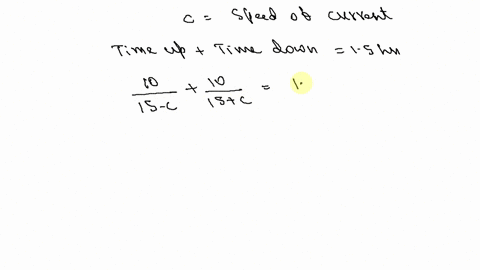 c = speed of current
Time up + Time down = 1.5 hr
10/15-c + 10/15+c = 1.